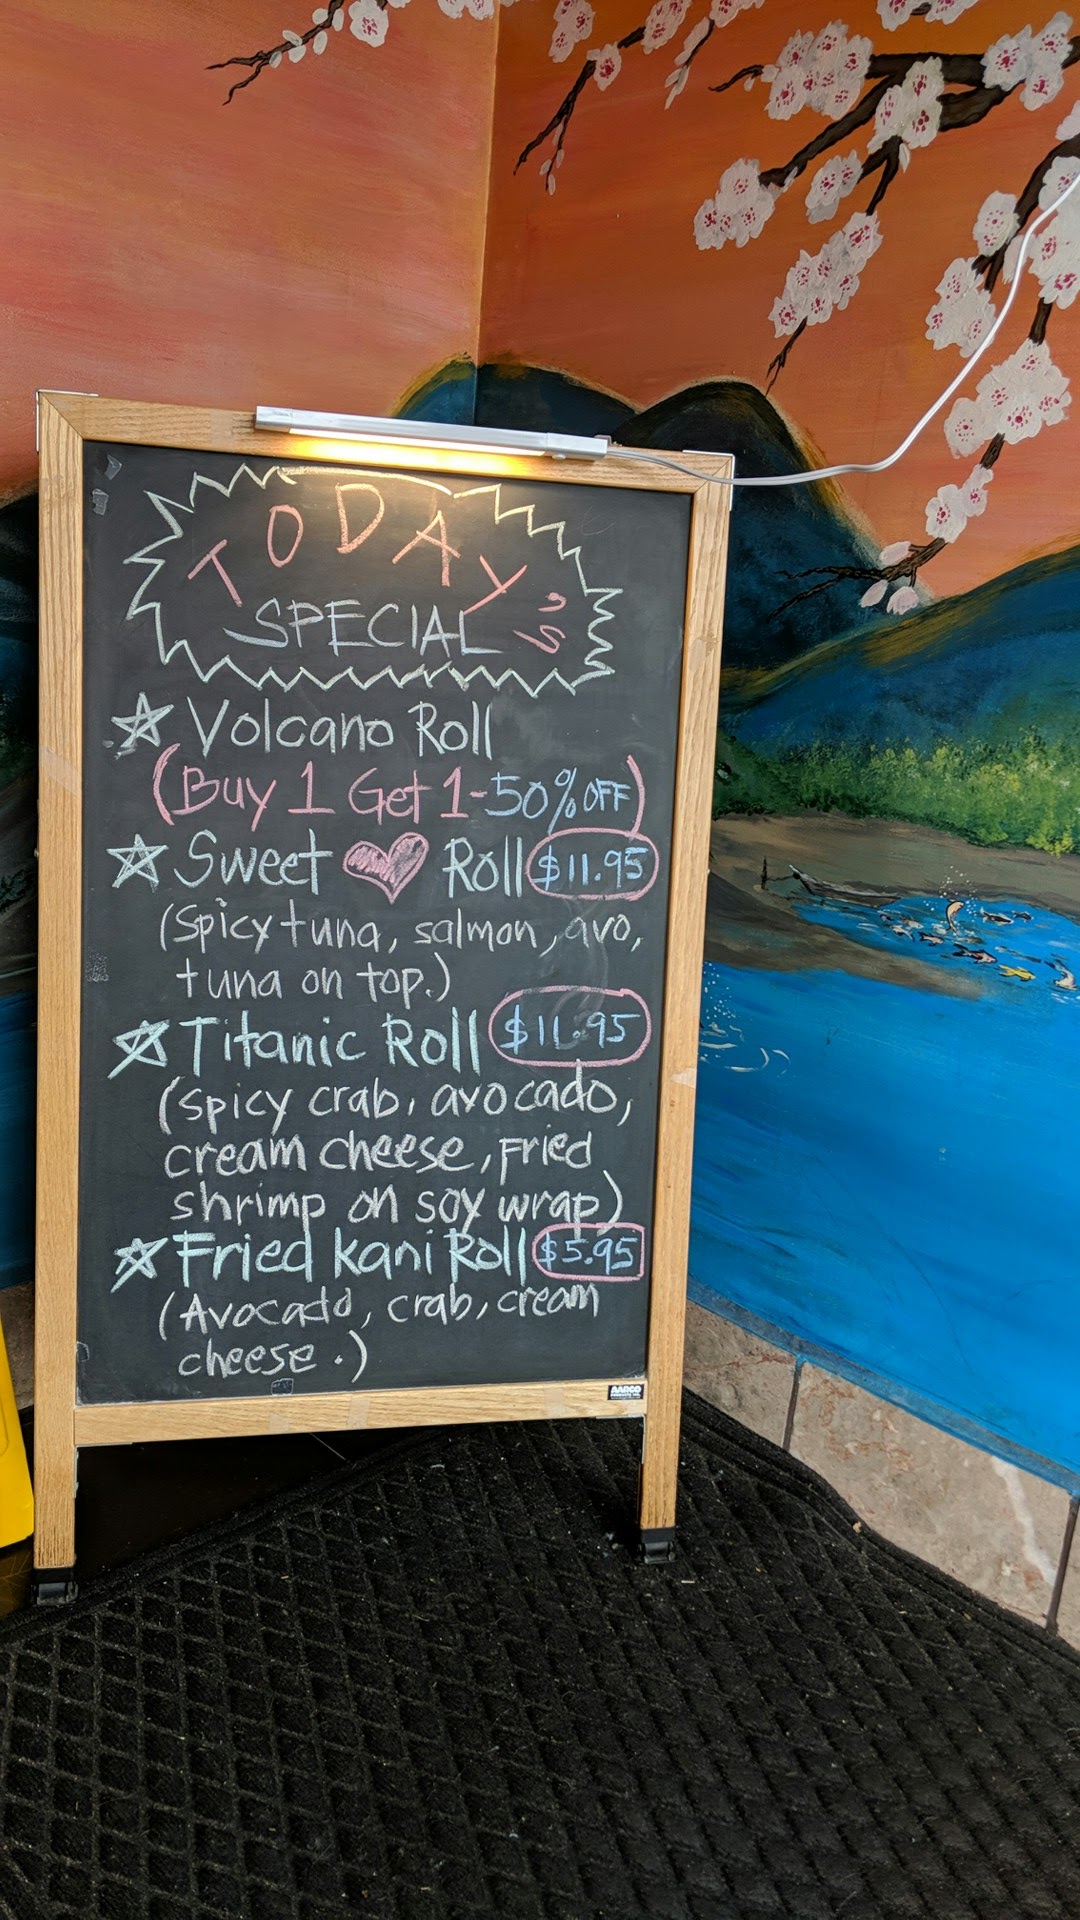 TODAY'S
SPECIAL
Volcano Roll
(Buy 1 Get 1-50% OFF)
Sweet Roll $11.95
(Spicy tuna, salmon, avo,
tuna on top.)
Titanic Roll $11.95
(Spicy crab, avocado,
cream cheese, fried
shrimp on soy wrap)
Fried Kani Roll $5.95
(Avocado, crab, cream
cheese.)
AARCO